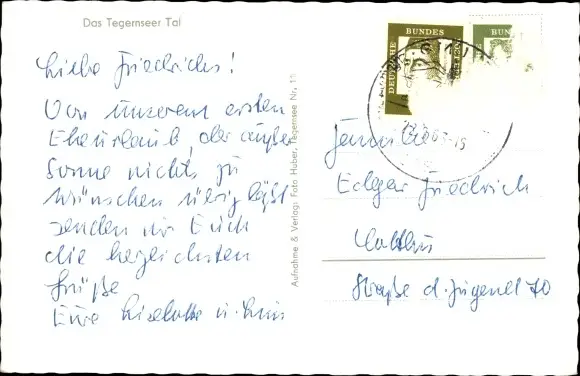 Das Tegernseer Tal
Liebe Friedrichs!
Von unserem ersten
Eheurlaub, der außer
Sonne nichts zu
wünschen übrig läßt
senden wir Euch
die herzlichsten
Grüße
Eure Liselotte u.
Aufnahme & Verlag: Foto Huber, Tegernsee Nr. 15
DEUTSCHE BUNDES
BUN
Familie
Edgar Friedrich
Cottbus
Straße d. Jugend 70